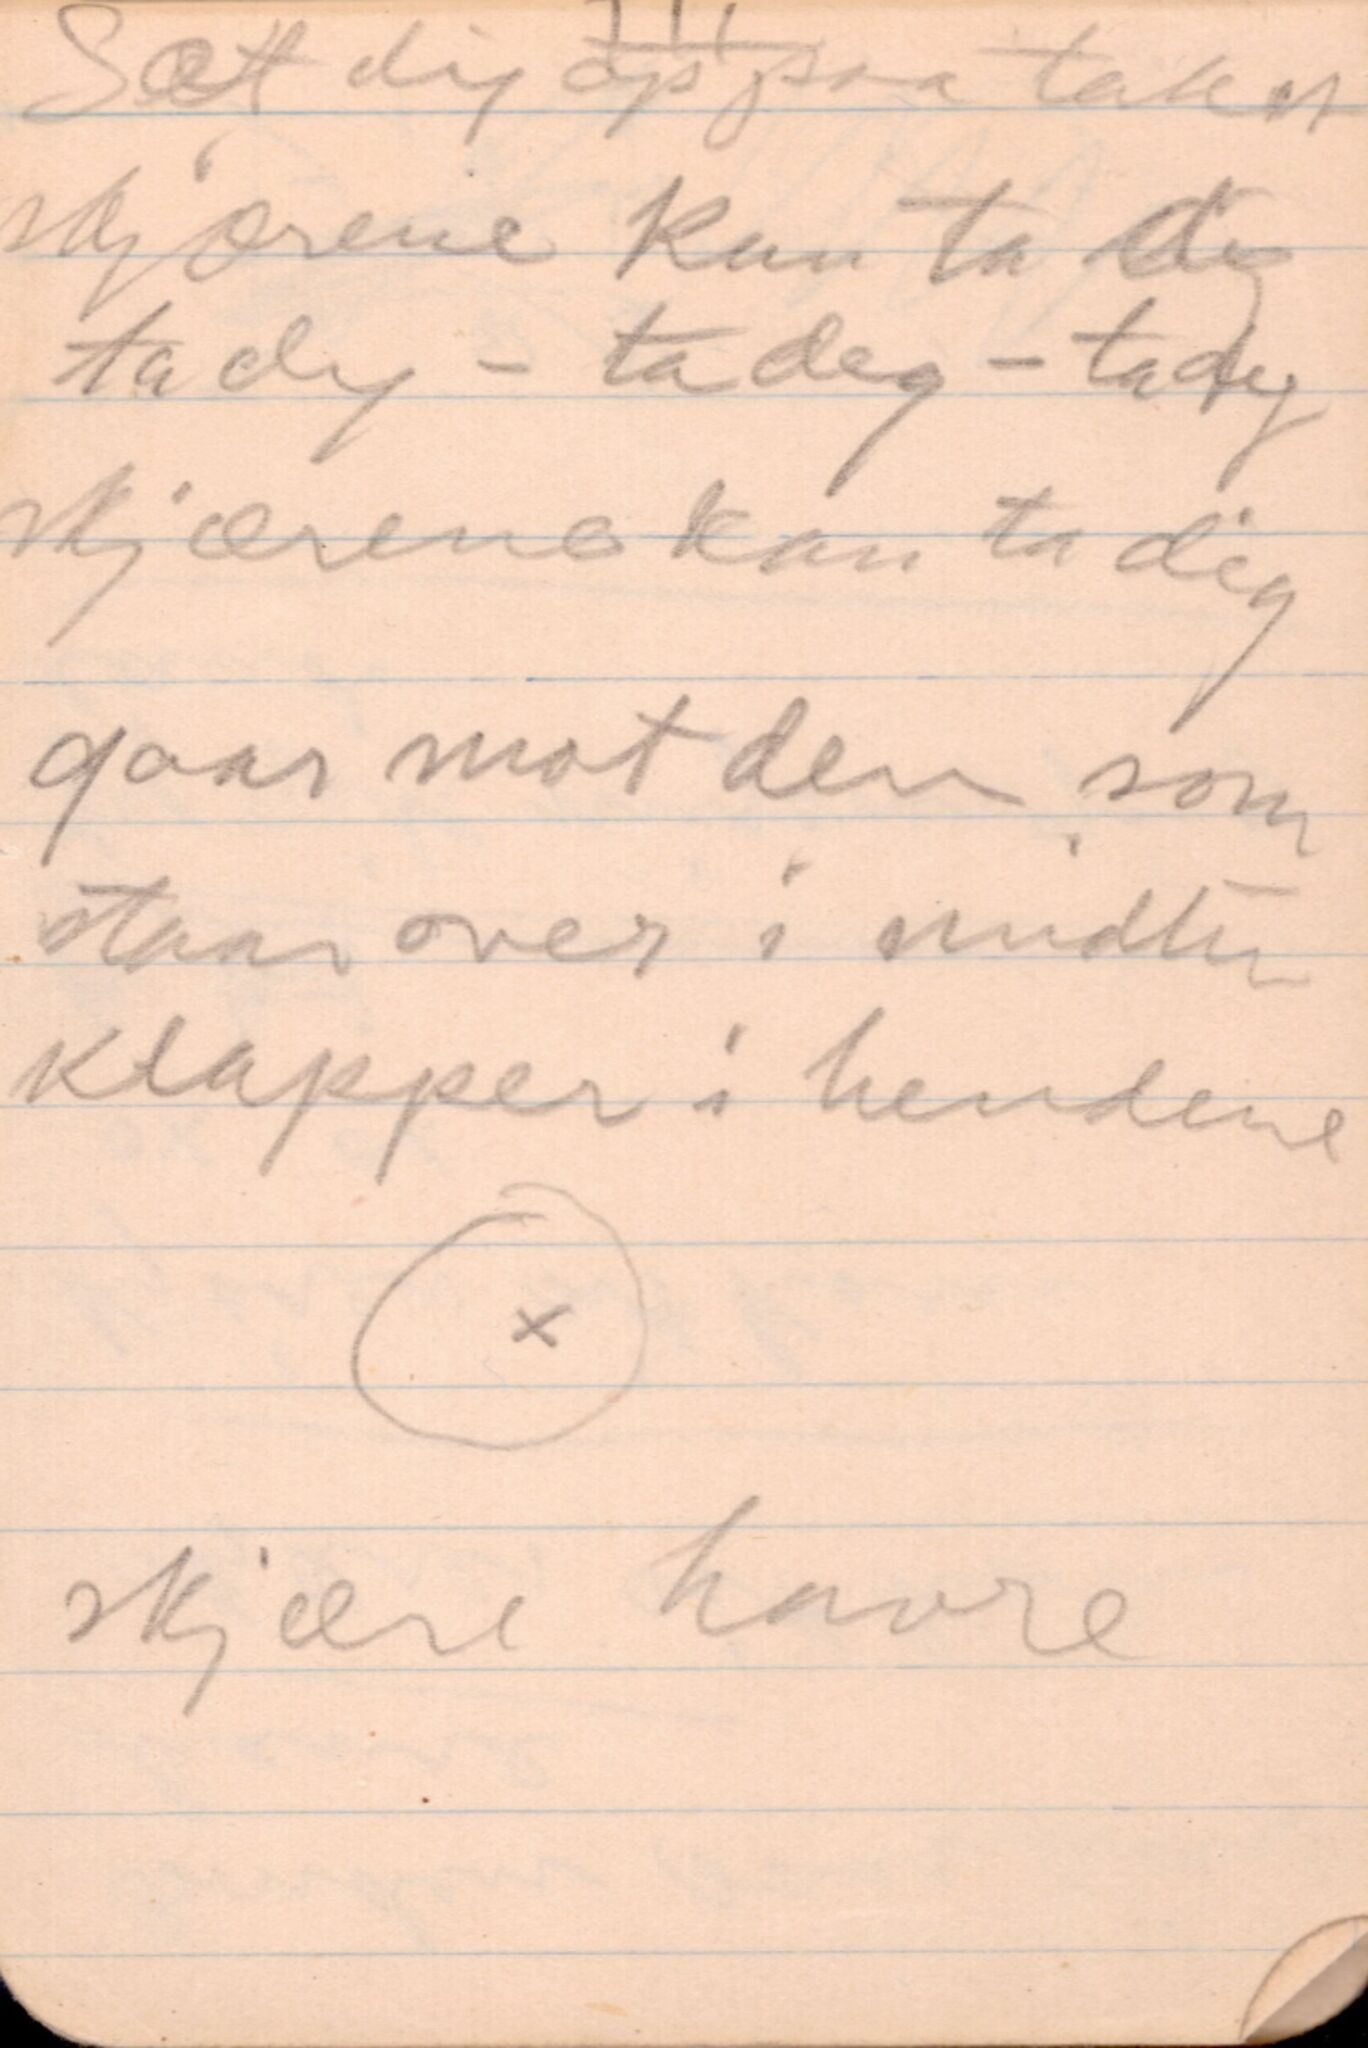 III
Sæt dig op paa taket
skjærene kan ta dig
ta dig - ta deg - ta dig
skjærene kan ta dig
gaar mot den som
staar over i midten
klapper i hendene
x
skjære havre